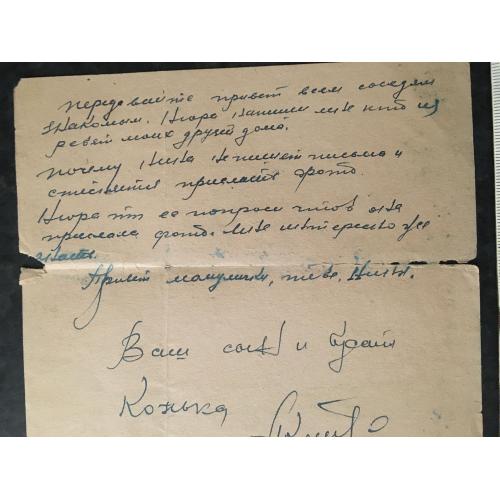 передавайте привет всем соседям
знакомым. Нюра напиши мне кто из
ребят моих друзей дома.
почему Нина не пишет письма и
стесняется прислать фото.
Нюра ты ее попроси чтоб она
прислала фото. мне интересно же
знать.
Привет мамулички, тебе, Нины.
Ваш сын и брат
Колька